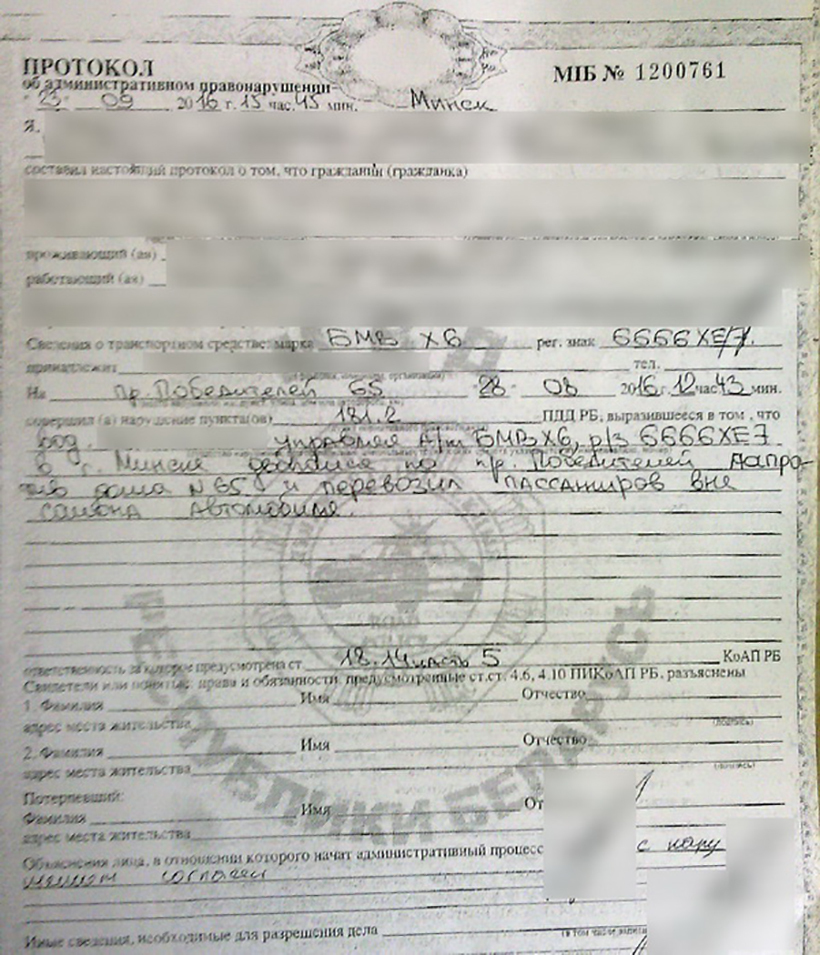 ПРОТОКОЛ
об административном правонарушении
МІБ № 1200761
23 09 2016 г. 15 час. 45 мин. Минск
Я,
составил настоящий протокол о том, что гражданин (гражданка)
проживающий (ая)
работающий (ая)
Сведения о транспортном средстве: марка БМВ Х6 рег. знак 6666ХЕ/7.
принадлежит тел.
На пр. Победителей 65 28 08 2016 г. 12 час 43 мин.
совершил (а) нарушение пункта(ов) 181.2 ПДД РБ, выразившееся в том, что
вод. управляя А/м БМВ Х6, р/з 6666ХЕ7
в г. Минске двигался по пр. Победителей напро-
тив дома №65 и перевозил пассажиров вне
салона автомобиля.
ответственность за которое предусмотрена ст. 18.14 часть 5 КоАП РБ
Свидетели или понятые: права и обязанности, предусмотренные ст.ст. 4.6, 4.10 ПИКоАП РБ, разъяснены
1. Фамилия Имя Отчество
адрес места жительства (подпись)
2. Фамилия Имя Отчество
адрес места жительства (подпись)
Потерпевший:
Фамилия Имя От
адрес места жительства
Объяснения лица, в отношении которого начат административный процесс с нару
шением согласен
Иные сведения, необходимые для разрешения дела
РЕСПУБЛИКИ БЕЛАРУСЬ